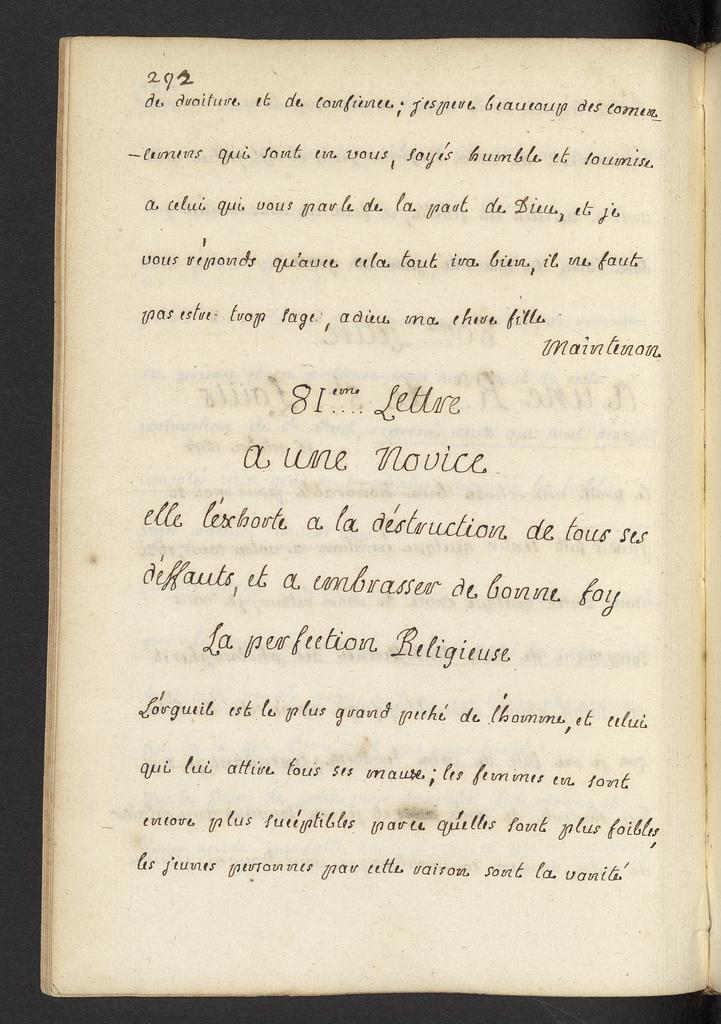 292
de droiture et de confience; j'espere beaucoup des comen
-cemens qui sont en vous, soyés humble et soumise
a celui qui vous parle de la part de Dieu, et je
vous réponds qu'avec cela tout ira bien, il ne faut
pas estre trop sage, adieu ma chere fille
Maintenon
81eme Lettre
a une Novice
elle l'éxhorte a la déstruction de tous ses
déffauts, et a embrasser de bonne foy
La perfection Religieuse
L'orgueil est le plus grand peché de l'homme, et celui
qui lui attire tous ses maux; les femmes en sont
encore plus sucéptibles parce qu'elles sont plus foibles,
les jeunes personnes par cette raison sont la vanité